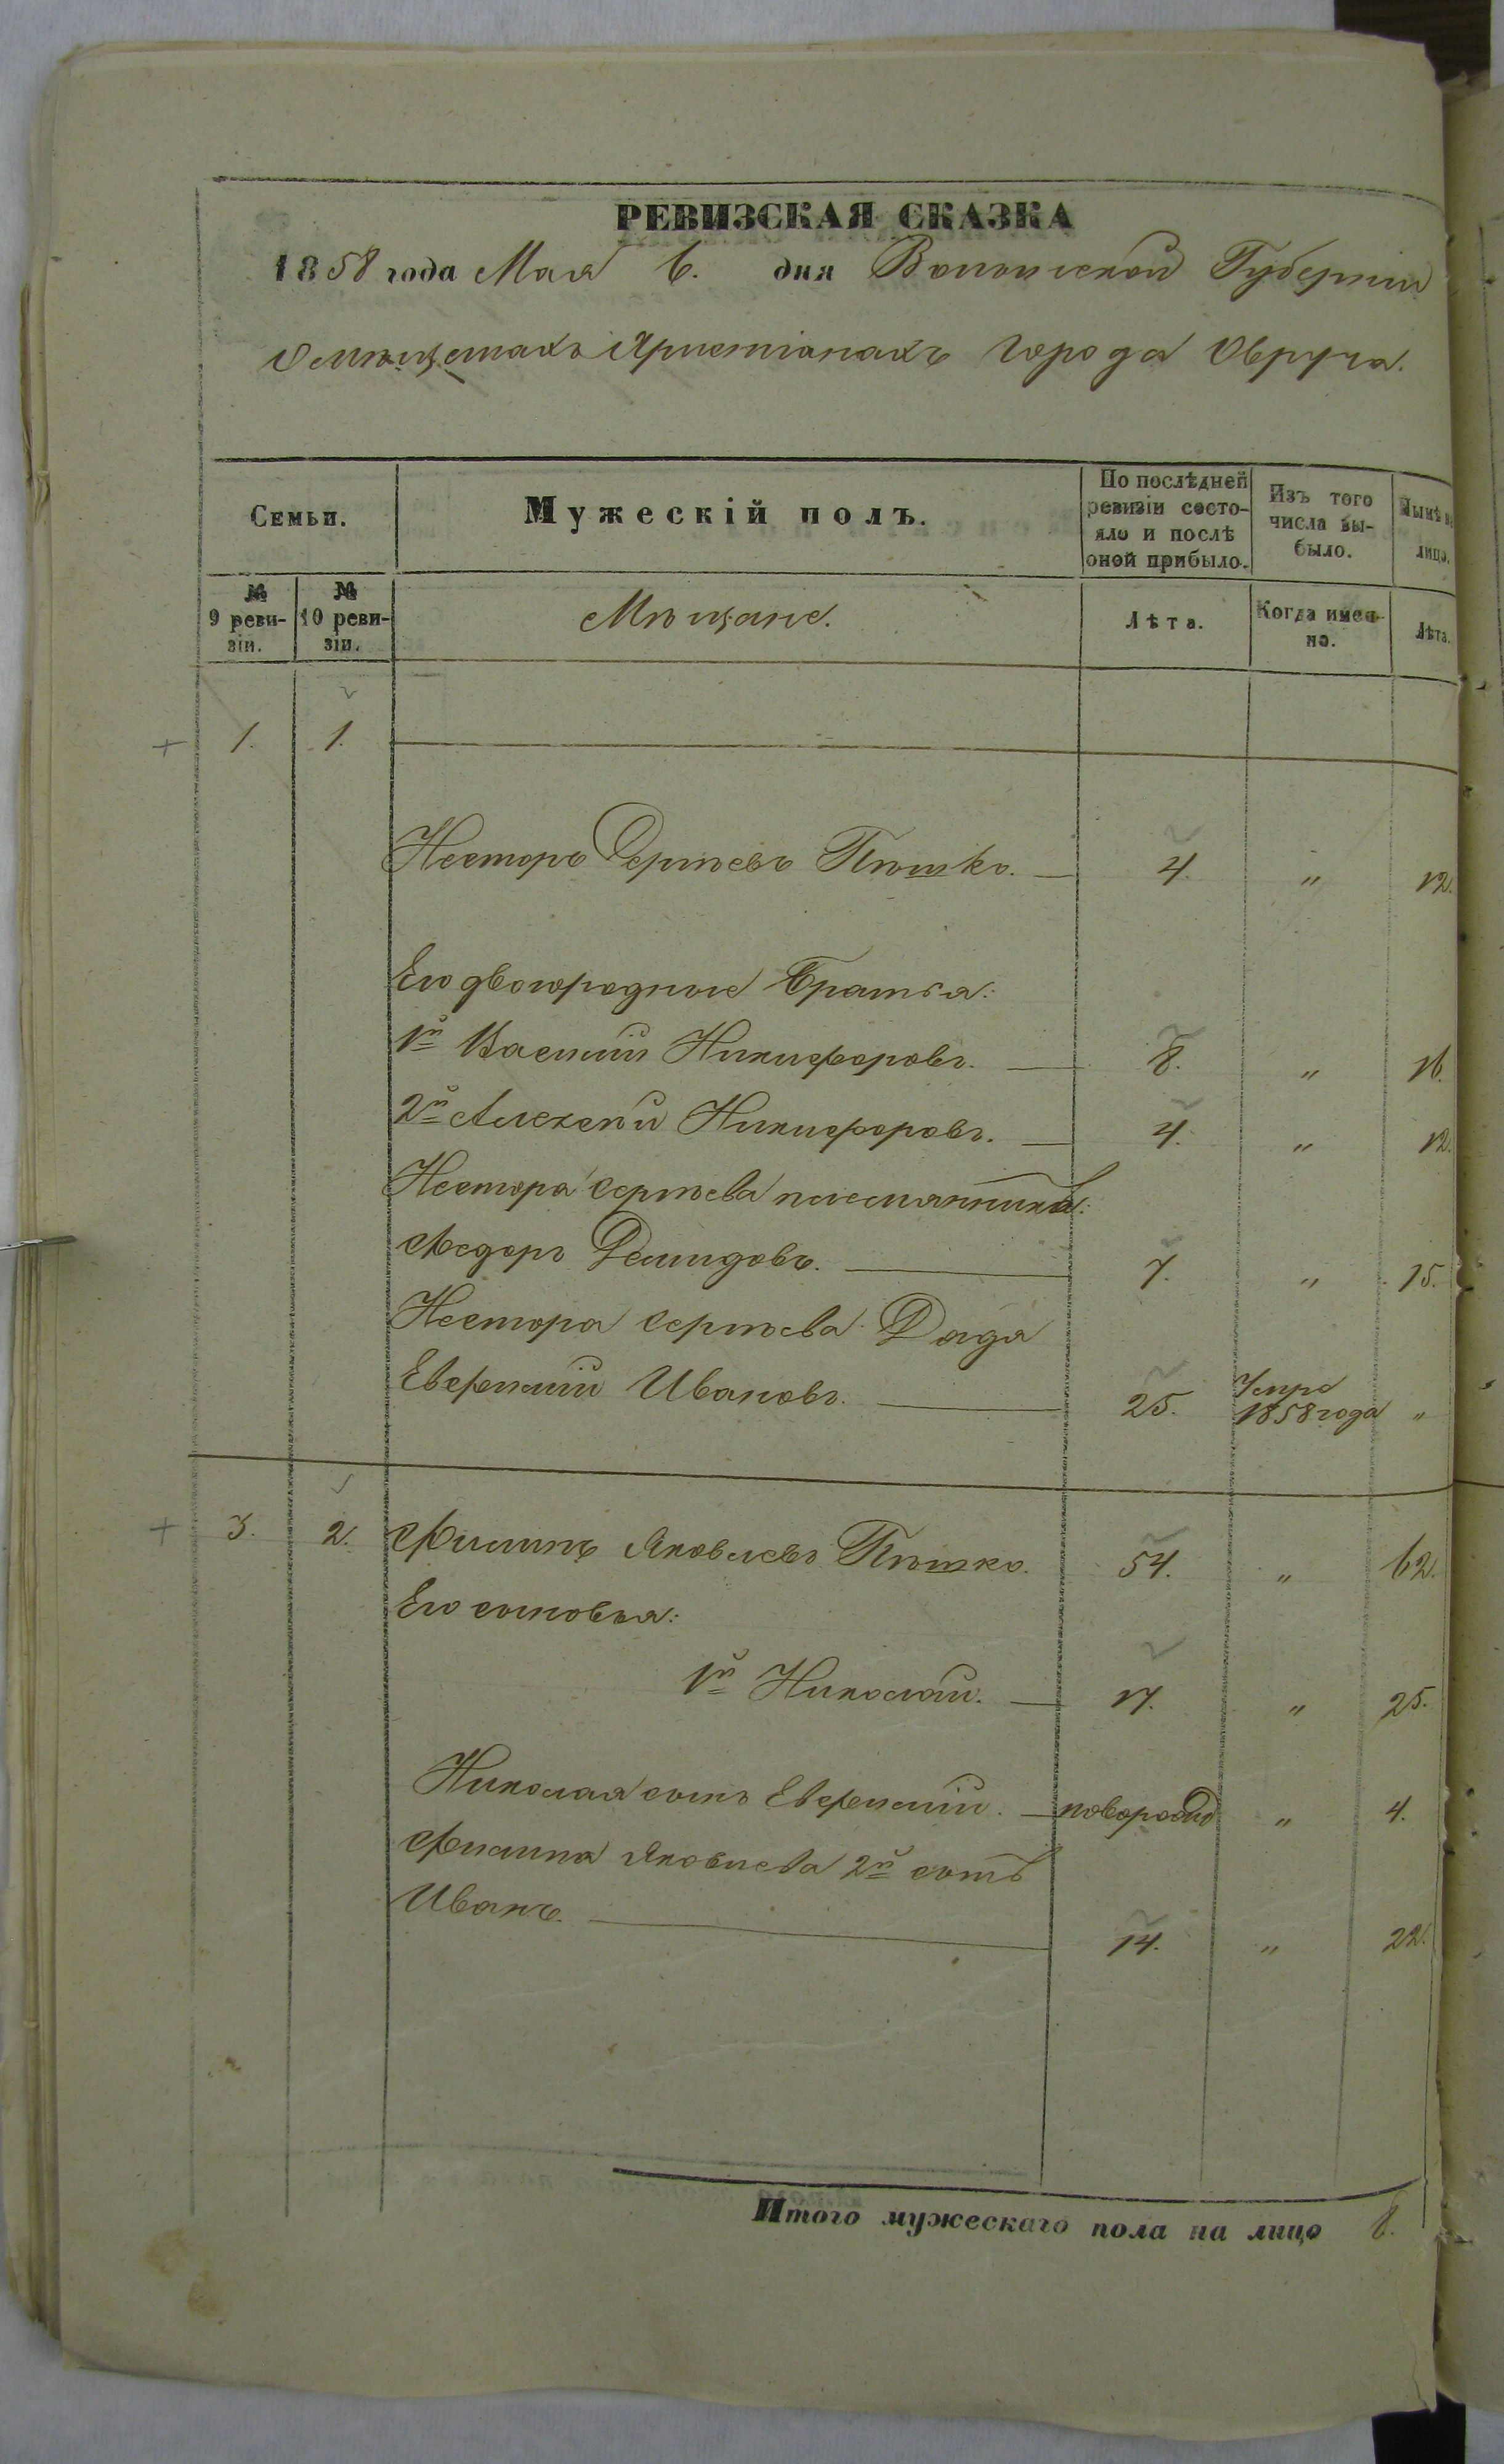 РЕВИЗСКАЯ СКАЗКА
1858 года Мая 6. дня Волынской Губерніи
О мѣщанахъ Христіанахъ города Овруча.
Семьи.
Мужескій полъ.
По послѣдней ревизіи состояло и послѣ оной прибыло.
Изъ того числа выбыло.
Нынѣ на лицо.
№ 9 ревизіи.
№ 10 ревизіи.
Мѣщане.
Лѣта.
Когда именно.
Лѣта.
1. 1.
Несторъ Сергѣевъ Пѣшко. 4. " 12.
Его двоюродные братья:
1й Василій Никифоровъ. 8. " 16.
2й Алексѣй Никифоровъ. 4. " 12.
Нестора Сергѣева племянникъ:
Федоръ Демидовъ. 7. " 15.
Нестора Сергѣева Дядя
Евфимій Ивановъ. 25. Умре 1858 года "
3. 2. Филипъ Яковлевъ Пѣшко. 54. " 62.
Его сыновья:
1й Николай. 17. " 25.
Николая сынъ Евфимій. новорожд " 4.
Филипа Яковлева 2й сынъ
Иванъ. 14. " 22.
Итого мужескаго пола на лицо 8.